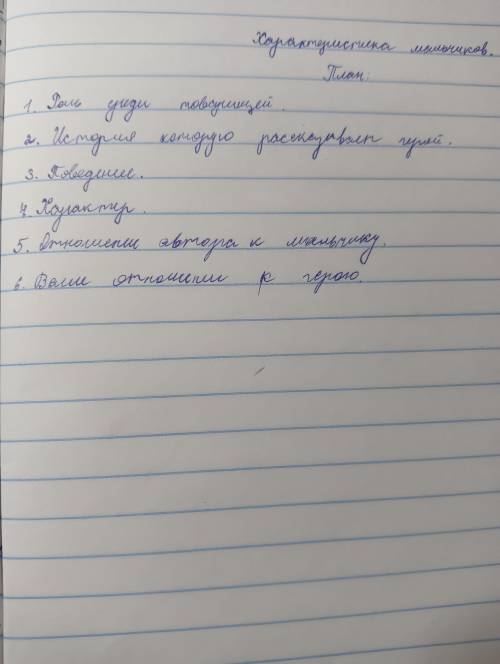 Характеристика мальчиков.
План:
1. Роль среди товарищей.
2. История которую рассказывал герой.
3. Поведение.
4. Характер.
5. Отношение автора к мальчику.
6. Ваше отношение к герою.